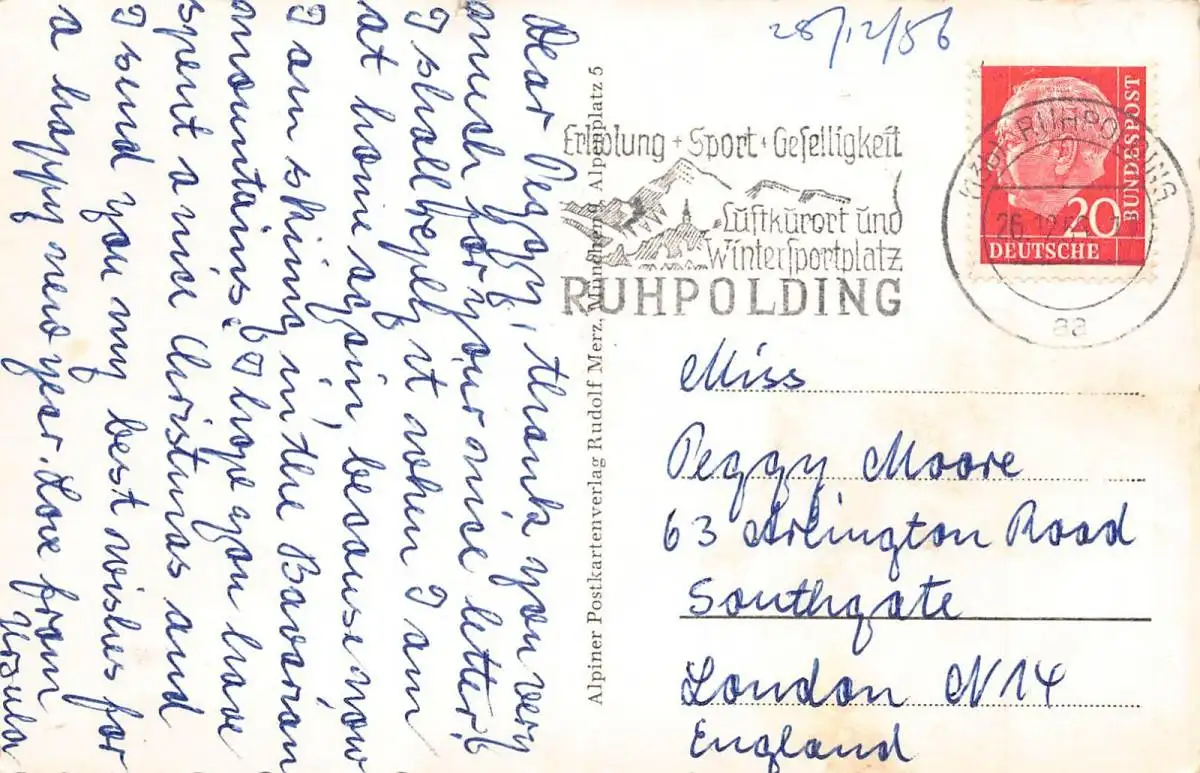 Dear Peggy, thank you very
much for your nice letter!
I shall reply it when I am
at home again, because now
I am skiing in the Bavarian
mountains. I hope you have
spent a nice Christmas and
I send you my best wishes for
a happy new year. Love from
Ursula
Alpiner Postkartenverlag Rudolf Merz, München 9, Alpenplatz 5
28/12/56
Erholung + Sport + Geselligkeit
Luftkurort und
Wintersportplatz
RUHPOLDING
RUHPOLDING
26.12.56
aa
DEUTSCHE
BUNDESPOST
20
Miss
Peggy Moore
63 Arlington Road
Southgate
London N14
England